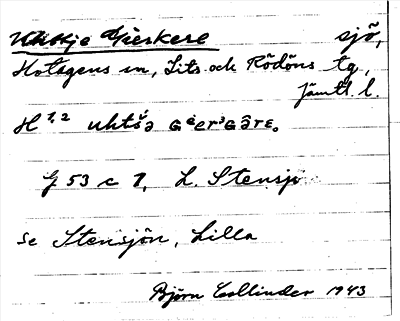 Uhttje Gierkere sjö,
Hotagens sn, Lits och Rödöns tg,
Jämtl. l.
H 1,2 uhtš́ə
G 53 c 7, L. Stensjö
Se Stensjön, Lilla
Björn Collinder 1943